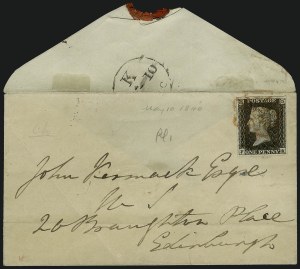 K
10
May 10 1840
Pl 1
POSTAGE
ONE PENNY
John Kermack Esqre
W S
20 Broughton Place
Edinburgh